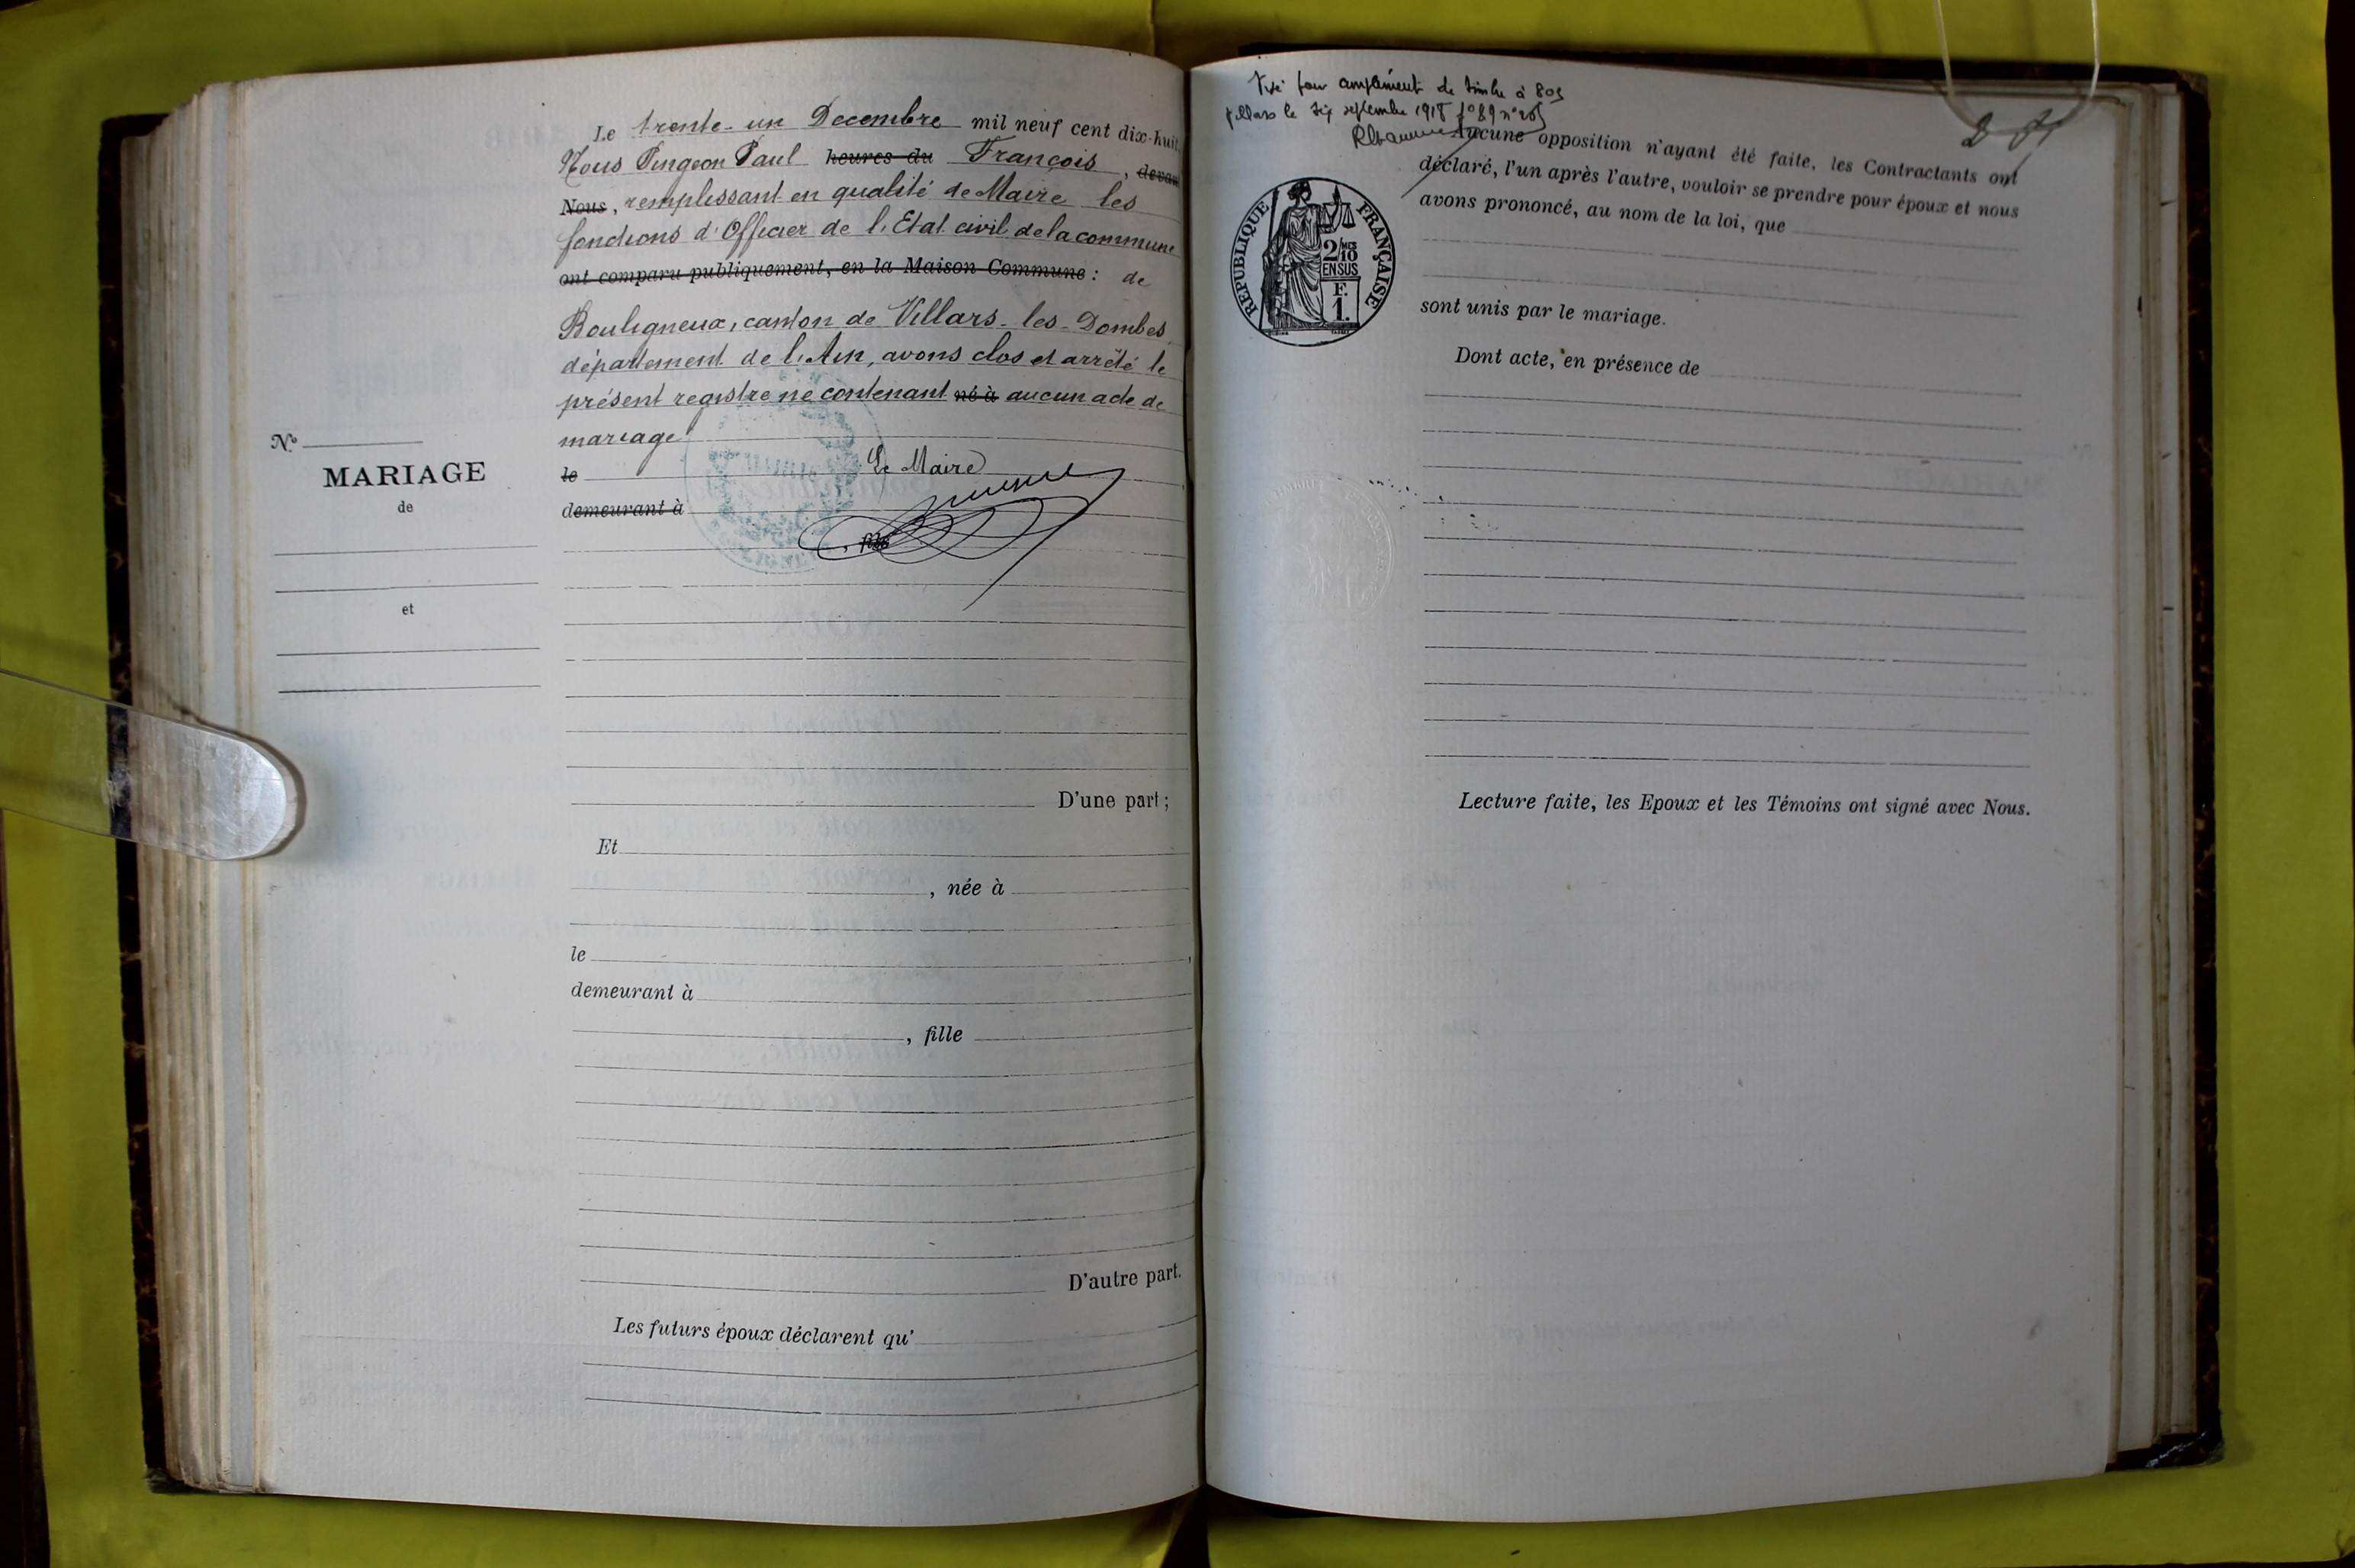 Le trente-un Decembre mil neuf cent dix-huit,
Nous Pingeon Paul heures du François, devant
Nous, remplissant en qualité de Maire les
fonctions d'Officier de l'Etat civil de la commune
ont comparu publiquement, en la Maison Commune : de
Bouligneux, canton de Villars-les-Dombes,
département de l'Ain, avons clos et arrêté le
présent registre ne contenant né à aucun acte de
mariage
le Le Maire
demeurant à
, fils
N°
MARIAGE
de
et
D'une part ;
Et
, née à
le
demeurant à
, fille
D'autre part.
Les futurs époux déclarent qu'
Visé pour complément de timbre à 80
Villars le six septembre 1918 f° 89 n° 265
2
Aucune opposition n'ayant été faite, les Contractants ont
déclaré, l'un après l'autre, vouloir se prendre pour époux et nous
avons prononcé, au nom de la loi, que
REPUBLIQUE FRANÇAISE
2/10
MES
EN SUS
F.
1.
sont unis par le mariage.
Dont acte, en présence de
Lecture faite, les Epoux et les Témoins ont signé avec Nous.